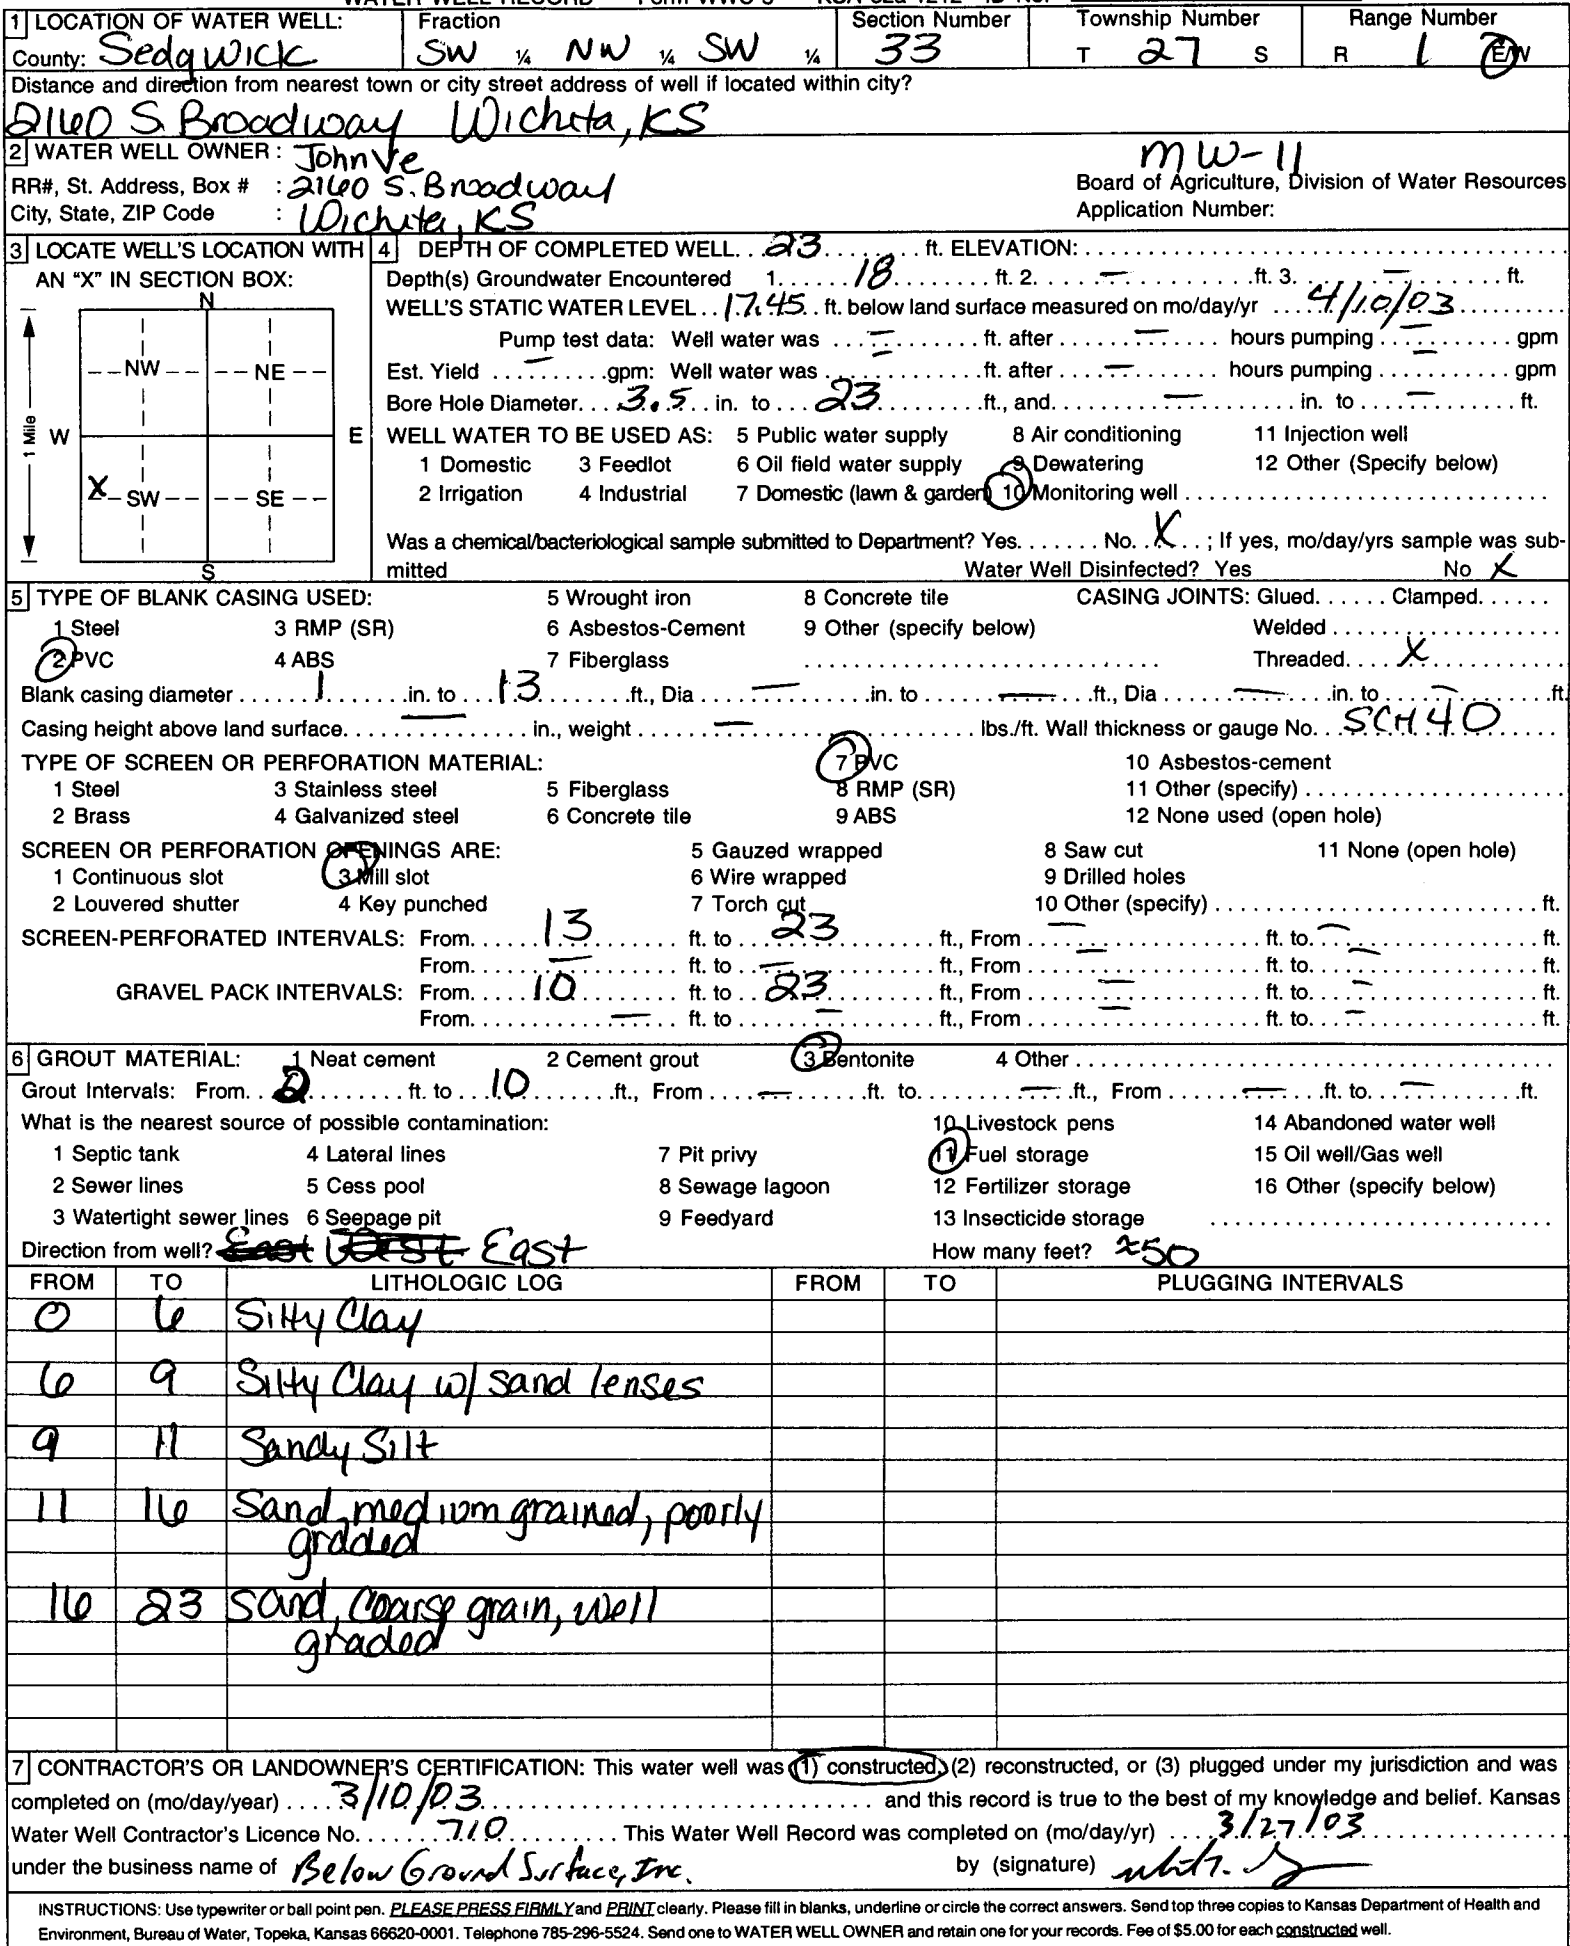 WATER WELL RECORD Form WWC-5 KSA 82a-1212 ID No.
1 LOCATION OF WATER WELL: Fraction Section Number Township Number Range Number
County: Sedgwick SW ¼ NW ¼ SW ¼ 33 T 27 S R 1 E/W
Distance and direction from nearest town or city street address of well if located within city?
2160 S. Broadway Wichita, KS
2 WATER WELL OWNER: John Ve MW-11
RR#, St. Address, Box # : 2160 S. Broadway Board of Agriculture, Division of Water Resources
City, State, ZIP Code : Wichita, KS Application Number:
3 LOCATE WELL'S LOCATION WITH AN "X" IN SECTION BOX:
N
NW NE
1 Mile W E
X SW SE
S
4 DEPTH OF COMPLETED WELL...23...ft. ELEVATION:
Depth(s) Groundwater Encountered 1...18...ft. 2. — ft. 3. — ft.
WELL'S STATIC WATER LEVEL..17.45..ft. below land surface measured on mo/day/yr 4/10/03
Pump test data: Well water was — ft. after — hours pumping — gpm
Est. Yield — gpm: Well water was — ft. after — hours pumping — gpm
Bore Hole Diameter...3.5..in. to...23...ft., and — in. to — ft.
WELL WATER TO BE USED AS: 5 Public water supply 8 Air conditioning 11 Injection well
1 Domestic 3 Feedlot 6 Oil field water supply 9 Dewatering 12 Other (Specify below)
2 Irrigation 4 Industrial 7 Domestic (lawn & garden) 10 Monitoring well
Was a chemical/bacteriological sample submitted to Department? Yes....... No..X..; If yes, mo/day/yrs sample was sub-
mitted Water Well Disinfected? Yes No X
5 TYPE OF BLANK CASING USED: 5 Wrought iron 8 Concrete tile CASING JOINTS: Glued...... Clamped......
1 Steel 3 RMP (SR) 6 Asbestos-Cement 9 Other (specify below) Welded
2 PVC 4 ABS 7 Fiberglass Threaded....X
Blank casing diameter 1 in. to 13 ft., Dia — in. to — ft., Dia — in. to — ft.
Casing height above land surface — in., weight — lbs./ft. Wall thickness or gauge No. SCH 40
TYPE OF SCREEN OR PERFORATION MATERIAL: 7 PVC 10 Asbestos-cement
1 Steel 3 Stainless steel 5 Fiberglass 8 RMP (SR) 11 Other (specify)
2 Brass 4 Galvanized steel 6 Concrete tile 9 ABS 12 None used (open hole)
SCREEN OR PERFORATION OPENINGS ARE: 5 Gauzed wrapped 8 Saw cut 11 None (open hole)
1 Continuous slot 3 Mill slot 6 Wire wrapped 9 Drilled holes
2 Louvered shutter 4 Key punched 7 Torch cut 10 Other (specify) ft.
SCREEN-PERFORATED INTERVALS: From 13 ft. to 23 ft., From — ft. to — ft.
From — ft. to — ft., From — ft. to — ft.
GRAVEL PACK INTERVALS: From 10 ft. to 23 ft., From — ft. to — ft.
From — ft. to — ft., From — ft. to — ft.
6 GROUT MATERIAL: 1 Neat cement 2 Cement grout 3 Bentonite 4 Other
Grout Intervals: From 2 ft. to 10 ft., From — ft. to — ft., From — ft. to — ft.
What is the nearest source of possible contamination: 10 Livestock pens 14 Abandoned water well
1 Septic tank 4 Lateral lines 7 Pit privy 11 Fuel storage 15 Oil well/Gas well
2 Sewer lines 5 Cess pool 8 Sewage lagoon 12 Fertilizer storage 16 Other (specify below)
3 Watertight sewer lines 6 Seepage pit 9 Feedyard 13 Insecticide storage
Direction from well? East West East How many feet? ≈50
FROM TO LITHOLOGIC LOG FROM TO PLUGGING INTERVALS
0 6 Silty Clay
6 9 Silty Clay w/ sand lenses
9 11 Sandy Silt
11 16 Sand, medium grained, poorly
graded
16 23 Sand, coarse grain, well
graded
7 CONTRACTOR'S OR LANDOWNER'S CERTIFICATION: This water well was (1) constructed, (2) reconstructed, or (3) plugged under my jurisdiction and was
completed on (mo/day/year) 3/10/03 and this record is true to the best of my knowledge and belief. Kansas
Water Well Contractor's Licence No. 710 This Water Well Record was completed on (mo/day/yr) 3/27/03
under the business name of Below Ground Surface, Inc. by (signature)
INSTRUCTIONS: Use typewriter or ball point pen. PLEASE PRESS FIRMLY and PRINT clearly. Please fill in blanks, underline or circle the correct answers. Send top three copies to Kansas Department of Health and
Environment, Bureau of Water, Topeka, Kansas 66620-0001. Telephone 785-296-5524. Send one to WATER WELL OWNER and retain one for your records. Fee of $5.00 for each constructed well.